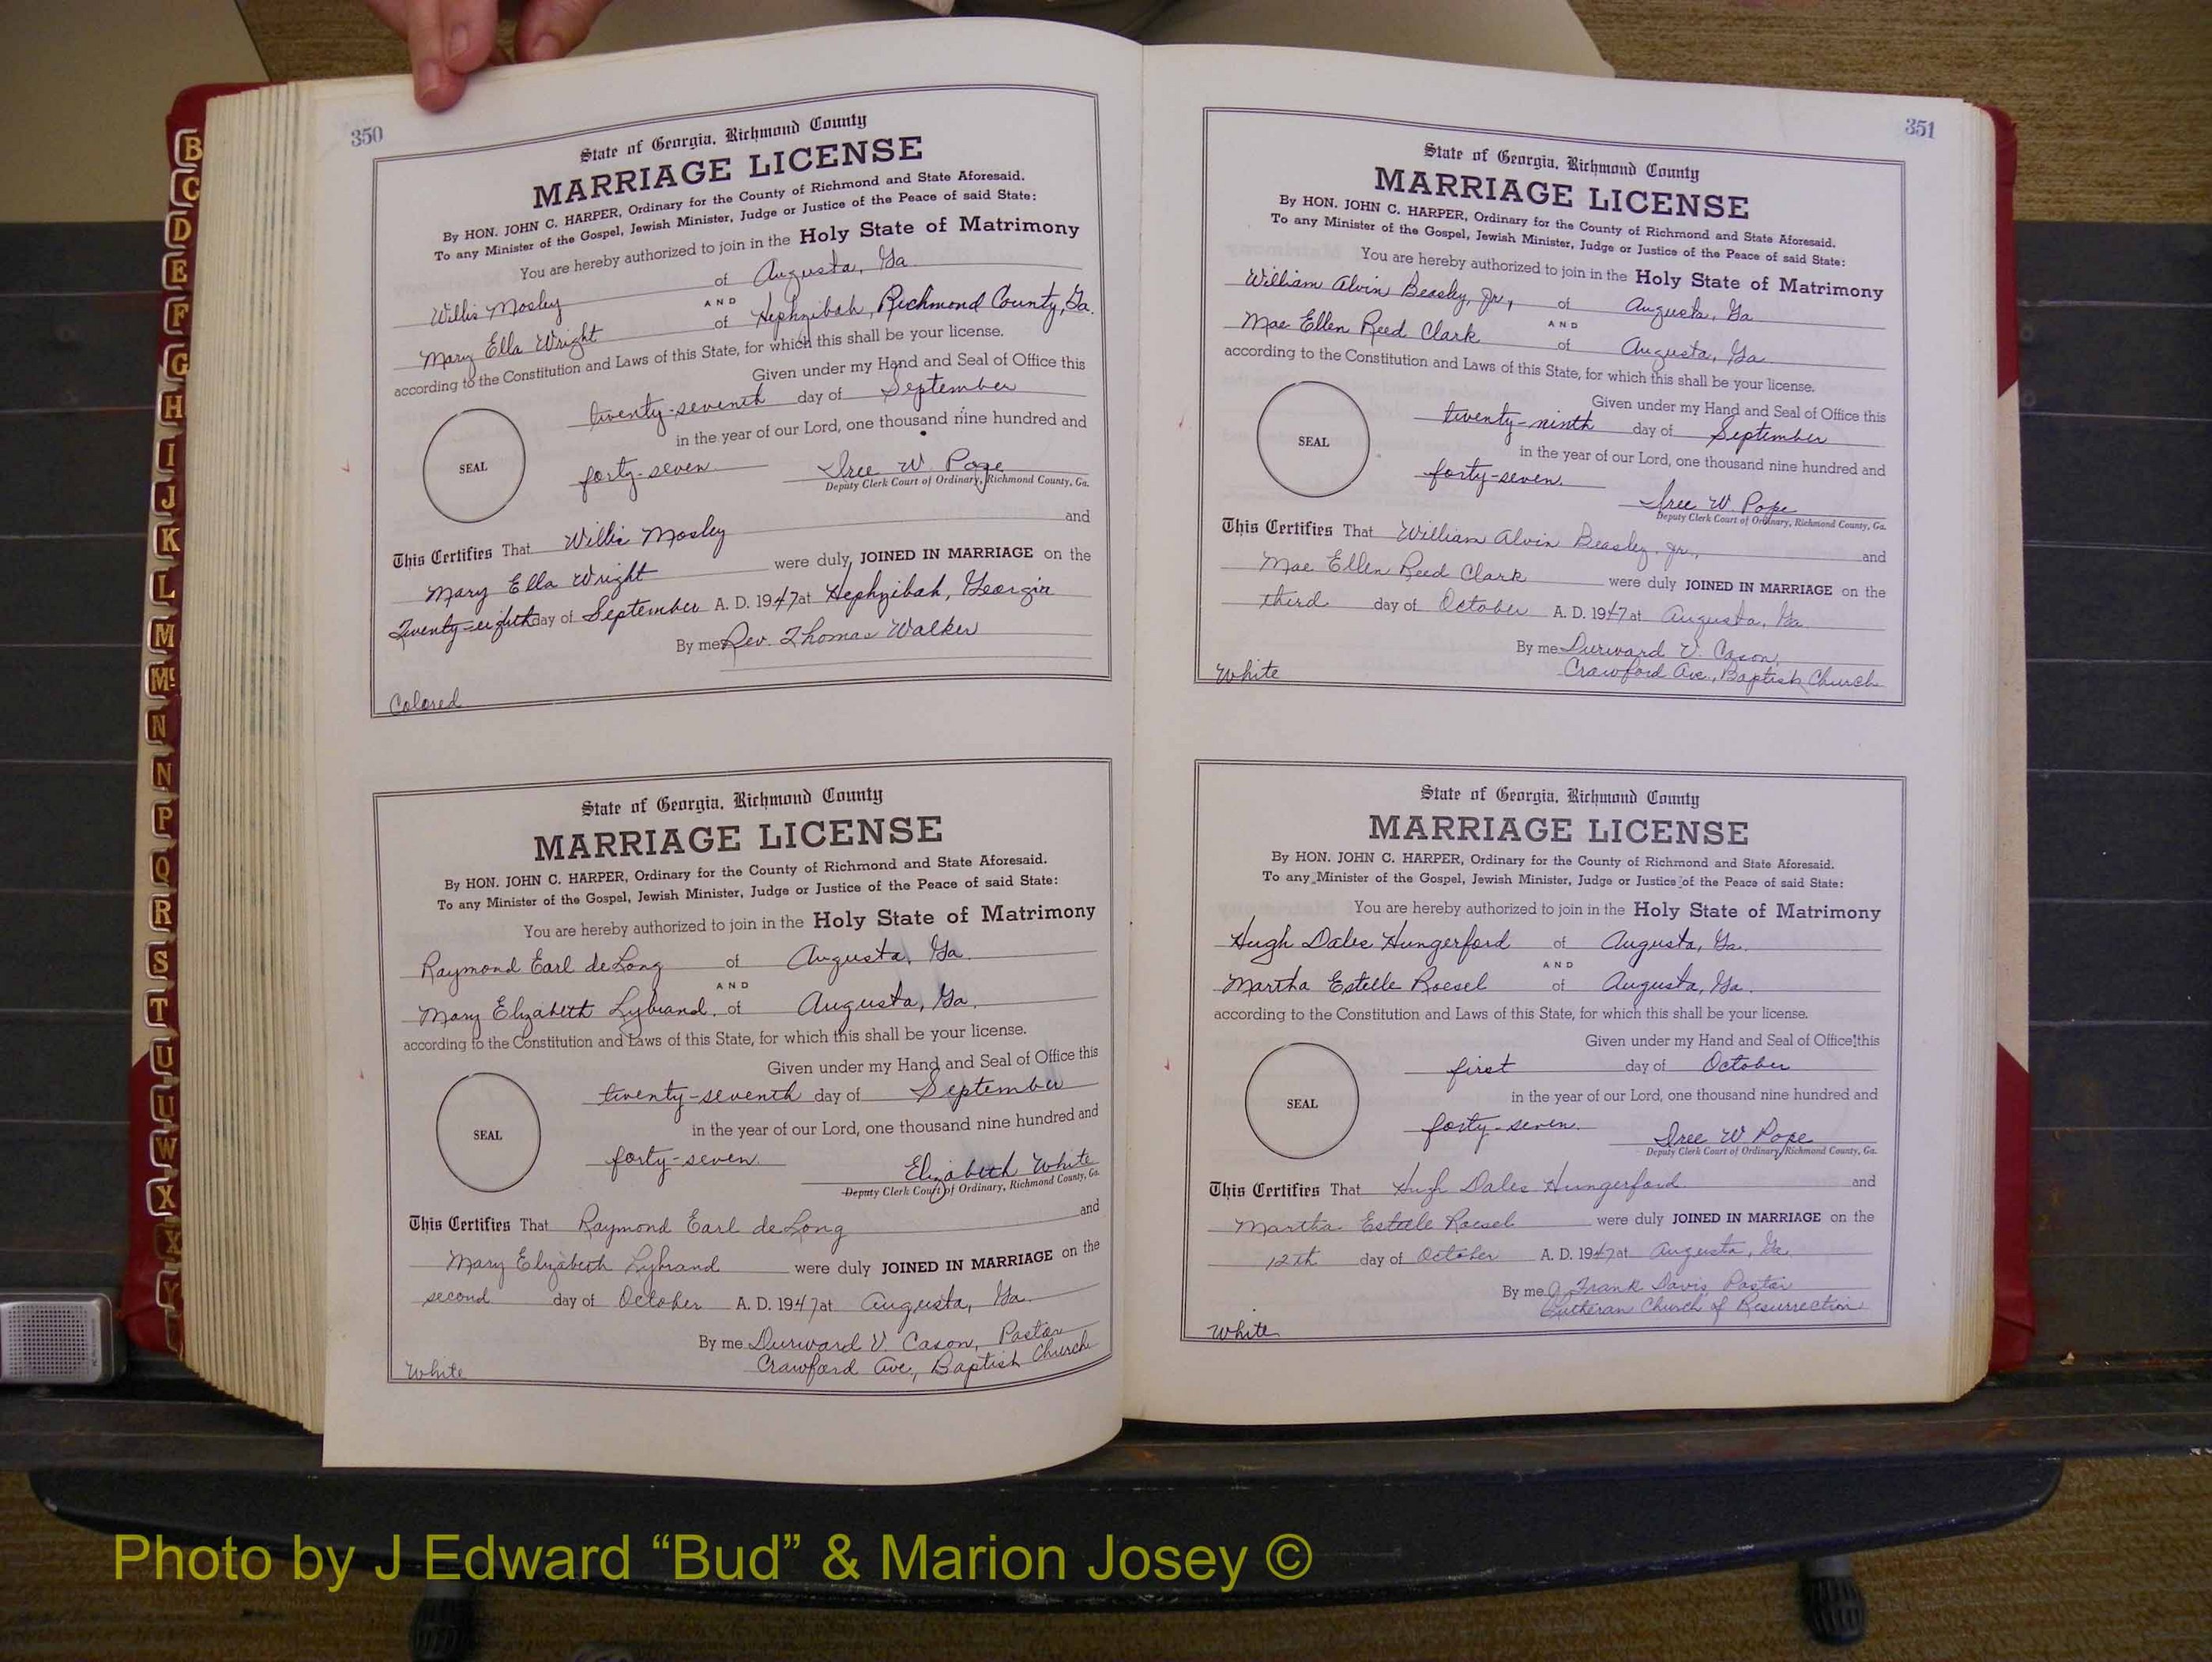 350
State of Georgia, Richmond County
MARRIAGE LICENSE
By HON. JOHN C. HARPER, Ordinary for the County of Richmond and State Aforesaid.
To any Minister of the Gospel, Jewish Minister, Judge or Justice of the Peace of said State:
You are hereby authorized to join in the Holy State of Matrimony
Willis Mosley of Augusta, Ga
AND
Mary Ella Wright of Hephzibah, Richmond County, Ga.
according to the Constitution and Laws of this State, for which this shall be your license.
Given under my Hand and Seal of Office this
twenty-seventh day of September
in the year of our Lord, one thousand nine hundred and
SEAL
forty-seven Iree W. Pope
Deputy Clerk Court of Ordinary, Richmond County, Ga.
This Certifies That Willis Mosley and
Mary Ella Wright were duly JOINED IN MARRIAGE on the
Twenty-eighth day of September A. D. 1947 at Hephzibah, Georgia
By me Rev. Thomas Walker
Colored
State of Georgia, Richmond County
MARRIAGE LICENSE
By HON. JOHN C. HARPER, Ordinary for the County of Richmond and State Aforesaid.
To any Minister of the Gospel, Jewish Minister, Judge or Justice of the Peace of said State:
You are hereby authorized to join in the Holy State of Matrimony
Raymond Earl deLong of Augusta, Ga.
AND
Mary Elizabeth Lybrand, of Augusta, Ga.
according to the Constitution and Laws of this State, for which this shall be your license.
Given under my Hand and Seal of Office this
twenty-seventh day of September
in the year of our Lord, one thousand nine hundred and
SEAL
forty-seven. Elizabeth White
Deputy Clerk Court of Ordinary, Richmond County, Ga.
This Certifies That Raymond Earl deLong and
Mary Elizabeth Lybrand were duly JOINED IN MARRIAGE on the
second day of October A. D. 1947 at Augusta, Ga.
By me Durward V. Cason, Pastor
Crawford Ave., Baptish Church
White
351
State of Georgia, Richmond County
MARRIAGE LICENSE
By HON. JOHN C. HARPER, Ordinary for the County of Richmond and State Aforesaid.
To any Minister of the Gospel, Jewish Minister, Judge or Justice of the Peace of said State:
You are hereby authorized to join in the Holy State of Matrimony
William Alvin Beasley, Jr., of Augusta, Ga
AND
Mae Ellen Reed Clark of Augusta, Ga
according to the Constitution and Laws of this State, for which this shall be your license.
Given under my Hand and Seal of Office this
twenty-ninth day of September
in the year of our Lord, one thousand nine hundred and
SEAL
forty-seven. Iree W. Pope
Deputy Clerk Court of Ordinary, Richmond County, Ga.
This Certifies That William Alvin Beasley, Jr., and
Mae Ellen Reed Clark were duly JOINED IN MARRIAGE on the
third day of October A. D. 1947 at Augusta, Ga.
By me Durward V. Cason,
Crawford Ave., Baptish Church
White
State of Georgia, Richmond County
MARRIAGE LICENSE
By HON. JOHN C. HARPER, Ordinary for the County of Richmond and State Aforesaid.
To any Minister of the Gospel, Jewish Minister, Judge or Justice of the Peace of said State:
You are hereby authorized to join in the Holy State of Matrimony
Hugh Dales Hungerford of Augusta, Ga.
AND
Martha Estelle Roesel of Augusta, Ga.
according to the Constitution and Laws of this State, for which this shall be your license.
Given under my Hand and Seal of Office this
first day of October
in the year of our Lord, one thousand nine hundred and
SEAL
forty-seven. Iree W Pope
Deputy Clerk Court of Ordinary, Richmond County, Ga.
This Certifies That Hugh Dales Hungerford and
Martha Estelle Roesel were duly JOINED IN MARRIAGE on the
12th day of October A. D. 1947 at Augusta, Ga.
By me J. Frank Davis Pastor
Lutheran Church of Resurrection
White
B
C
D
E
F
G
H
I
J
K
L
M
Mc
N
N
P
Q
R
S
T
U
U
W
X
X
Y
Photo by J Edward “Bud” & Marion Josey ©